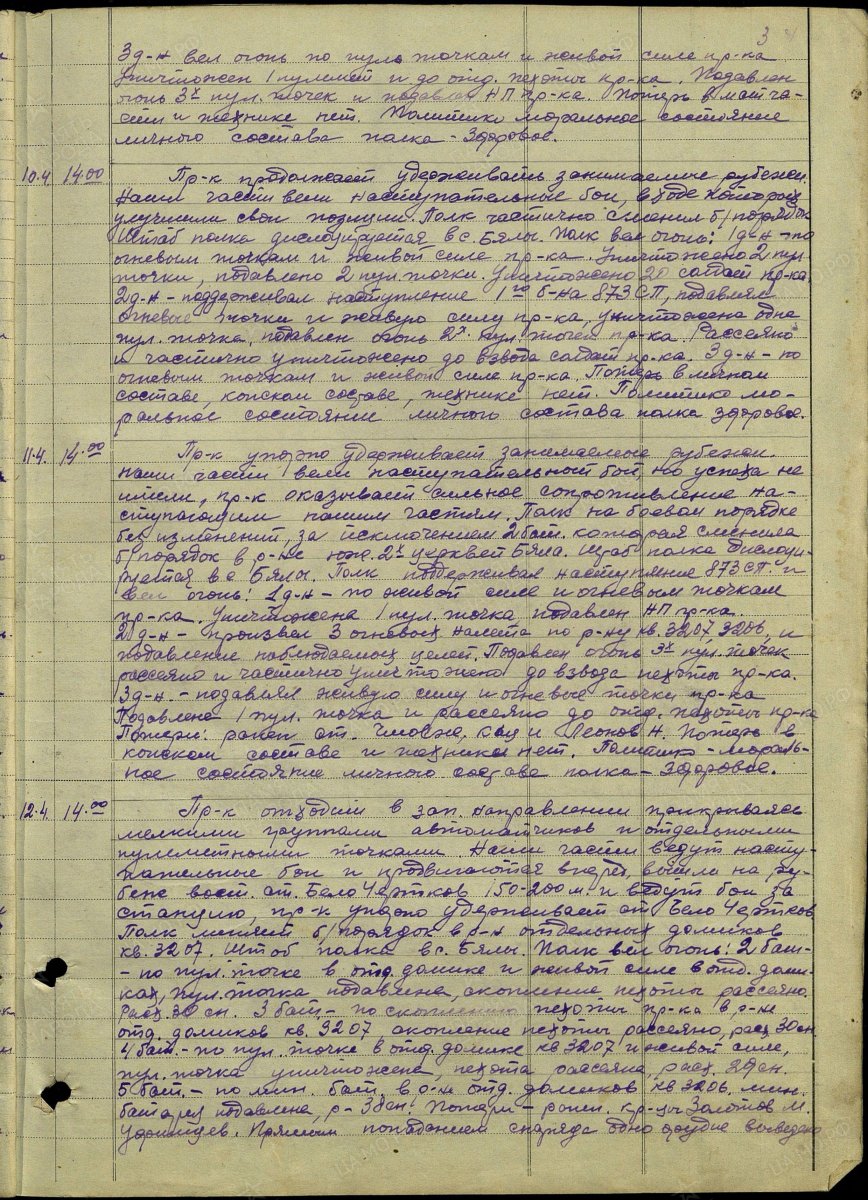 3
3 д-н вел огонь по пул. точкам и живой силе пр-ка
уничтожен 1 пулемет и до отд. пехоты пр-ка. Подавлен
огонь 3х пул. точек и подавлен НП пр-ка. Потерь в мат. ча-
сти и технике нет. Политико моральное состояние
личного состава полка - Здоровое.
10.4 14.00 Пр-к продолжает удерживать занимаемые рубежи.
Наши части вели наступательные бои, в ходе которых
улучшили свои позиции. Полк частично сменил б/порядок
Штаб полка дислоцируется в с. Бялы. Полк вел огонь: 1 д-н - по
огневым точкам и живой силе пр-ка. Уничтожено 2 пул.
точки, подавлено 2 пул. точки. Уничтожено 20 солдат пр-ка.
2 д-н - поддерживал наступление 1го б-на 873 СП, подавлял
огневые точки и живую силу пр-ка, уничтожена одна
пул. точка, подавлен огонь 2х пул. точек пр-ка. Рассеяно
и частично уничтожено до взвода солдат пр-ка. 3 д-н - по
огневым точкам и живой силе пр-ка. Потерь в личном
составе, конском составе, технике нет. Политико мо-
ральное состояние личного состава полка здоровое.
11.4. 14.00 Пр-к упорно удерживает занимаемые рубежи.
Наши части вели наступательный бой, но успеха не
имели, пр-к оказывает сильное сопротивление на-
ступающим нашим частям. Полк на боевом порядке
без изменений, за исключением 2 бат. которая сменила
б/порядок в р-не юж. 2х церквей Бяла. Штаб полка дислоци-
руется в с Бялы. Полк поддерживал наступление 873 СП. и
вел огонь: 1 д-н - по живой силе и огневым точкам
пр-ка. Уничтожена 1 пул. точка подавлен НП пр-ка.
2 д-н - произвел 3 огневых налета по р-ну кв. 3207, 3206, и
подавление наблюдаемых целей. Подавлен огонь 3х пул. точек
рассеяно и частично уничтожено до взвода пехоты пр-ка.
3 д-н. - подавлял живую силу и огневые точки пр-ка
Подавлена 1 пул. точка и рассеяно до отд. пехоты пр-ка
Потери: ранен ст. и Леонов Н. Потерь в
конском составе и технике нет. Политико - мораль-
ное состояние личного состава полка - Здоровое.
12.4 14.00 Пр-к отходит в зап. направлении прикрываясь
мелкими группами автоматчиков и отдельными
пулеметными точками. Наши части ведут насту-
пательные бои и продвигаются вперед, вышли на ру-
беж вост. ст. Бело Чертков 150-200 м. и ведут бои за
станцию, пр-к упорно удерживает ст. Бело Чертков
Полк меняет б/порядок в р-н отдельных домиков
кв. 3207. Штаб полка в с. Бялы. Полк вел огонь: 2 бат -
- по пул. точке в отд. домике и живой силе в отд. доми-
ках, пул. точка подавлена, скопление пехоты рассеяно.
Расх. 30 сн. 3 бат. - по скоплению пехоты пр-ка в р-не
отд. домиков кв. 3207, скопление пехоты рассеяно, расх. 30 сн.
4 бат. - по пул. точке в отд. домике кв 3207 и живой силе,
пул. точка уничтожена, пехота рассеяна, расх. 29 сн.
5 бат. - по мин. бат. в р-н отд. домиков кв 3206. мин.
батарея подавлена, р - 38 сн. Потери - ранен. кр-цы Золотов М.
Уфимцев. Прямым попаданием снаряда одно орудие выведено